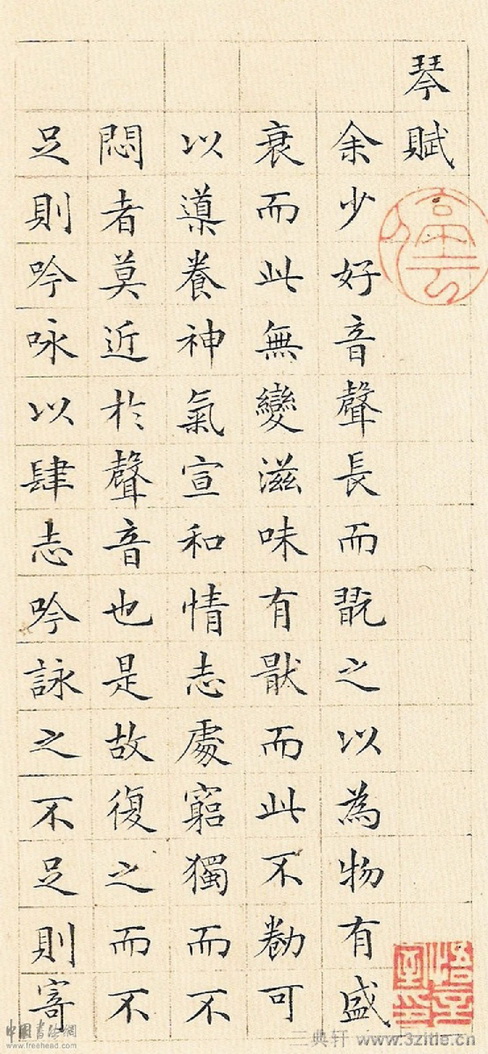 琴賦
余少好音聲長而翫之以為物有盛
衰而此無變滋味有猒而此不勌可
以導養神氣宣和情志處窮獨而不
悶者莫近於聲音也是故復之而不
足則吟咏以肆志吟詠之不足則寄
中國書法網
www.treehead.com
三典轩 www.3zitie.cn